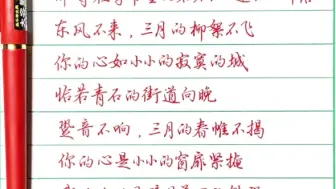 东风不来，三月的柳絮不飞
你的心如小小的寂寞的城
恰若青石的街道向晚
跫音不响，三月的春帷不揭
你的心是小小的窗扉紧掩